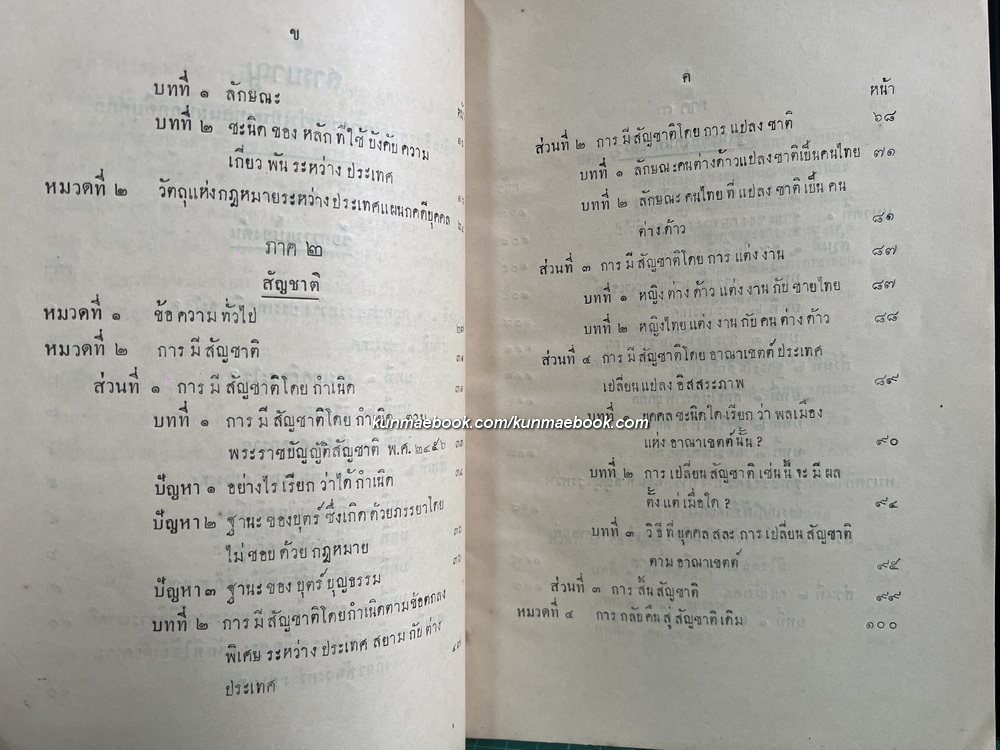 ข
บทที่ ๑ ลักษณะ
บทที่ ๒ ชะนิด ของ หลัก ที่ ใช้ บังคับ ความ
เกี่ยว พัน ระหว่าง ประเทศ
หมวดที่ ๒ วัตถุแห่งกฎหมายระหว่างประเทศแผนกคดีบุคคล
ภาค ๒
สัญชาติ
หมวดที่ ๑ ข้อ ความ ทั่วไป
หมวดที่ ๒ การ มี สัญชาติ
ส่วนที่ ๑ การ มี สัญชาติโดย กำเนิด
บทที่ ๑ การ มี สัญชาติโดย กำเนิด ตาม
พระราชบัญญัติสัญชาติ พ.ศ. ๒๔๕๖
ปัญหา ๑ อย่างไร เรียก ว่าได้ กำเนิด
ปัญหา ๒ ฐานะ ของบุตร์ ซึ่งเกิด ด้วยภรรยาโดย
ไม่ชอบ ด้วย กฎหมาย
ปัญหา ๓ ฐานะ ของ บุตร์ บุญธรรม
บทที่ ๒ การ มี สัญชาติโดยกำเนิดตามข้อตกลง
พิเศษ ระหว่าง ประเทศ สยาม กับ ต่าง
ประเทศ
ค
หน้า
ส่วนที่ ๒ การ มี สัญชาติโดย การ แปลง ชาติ ๖๘
บทที่ ๑ ลักษณะคนต่างด้าวแปลงชาติเป็นคนไทย ๗๑
บทที่ ๒ ลักษณะ คนไทย ที่ แปลง ชาติ เป็น คน
ต่าง ด้าว ๘๑
ส่วนที่ ๓ การ มี สัญชาติโดย การ แต่ง งาน ๘๗
บทที่ ๑ หญิง ต่าง ด้าว แต่ง งาน กับ ชายไทย ๘๗
บทที่ ๒ หญิงไทย แต่ง งาน กับ คน ต่าง ด้าว ๘๘
ส่วนที่ ๔ การ มี สัญชาติโดย อาณาเขตต์ ประเทศ
เปลี่ยนแปลง อิสสระภาพ ๘๙
kunmaebook.com/kunmaebook.com
บทที่ ๑ บุคคล ชะนิดใด เรียก ว่า พลเมือง
แห่ง อาณาเขตต์ นั้น ? ๙๐
บทที่ ๒ การ เปลี่ยน สัญชาติ เช่น นี้ จะ มี ผล
ตั้ง แต่ เมื่อใด ? ๙๔
บทที่ ๓ วิธี ที่ บุคคล สละ การ เปลี่ยน สัญชาติ
ตาม อาณาเขตต์ ๙๕
ส่วนที่ ๓ การ สิ้น สัญชาติ ๙๙
หมวดที่ ๔ การ กลับ คืน สู่ สัญชาติ เดิม ๑๐๐